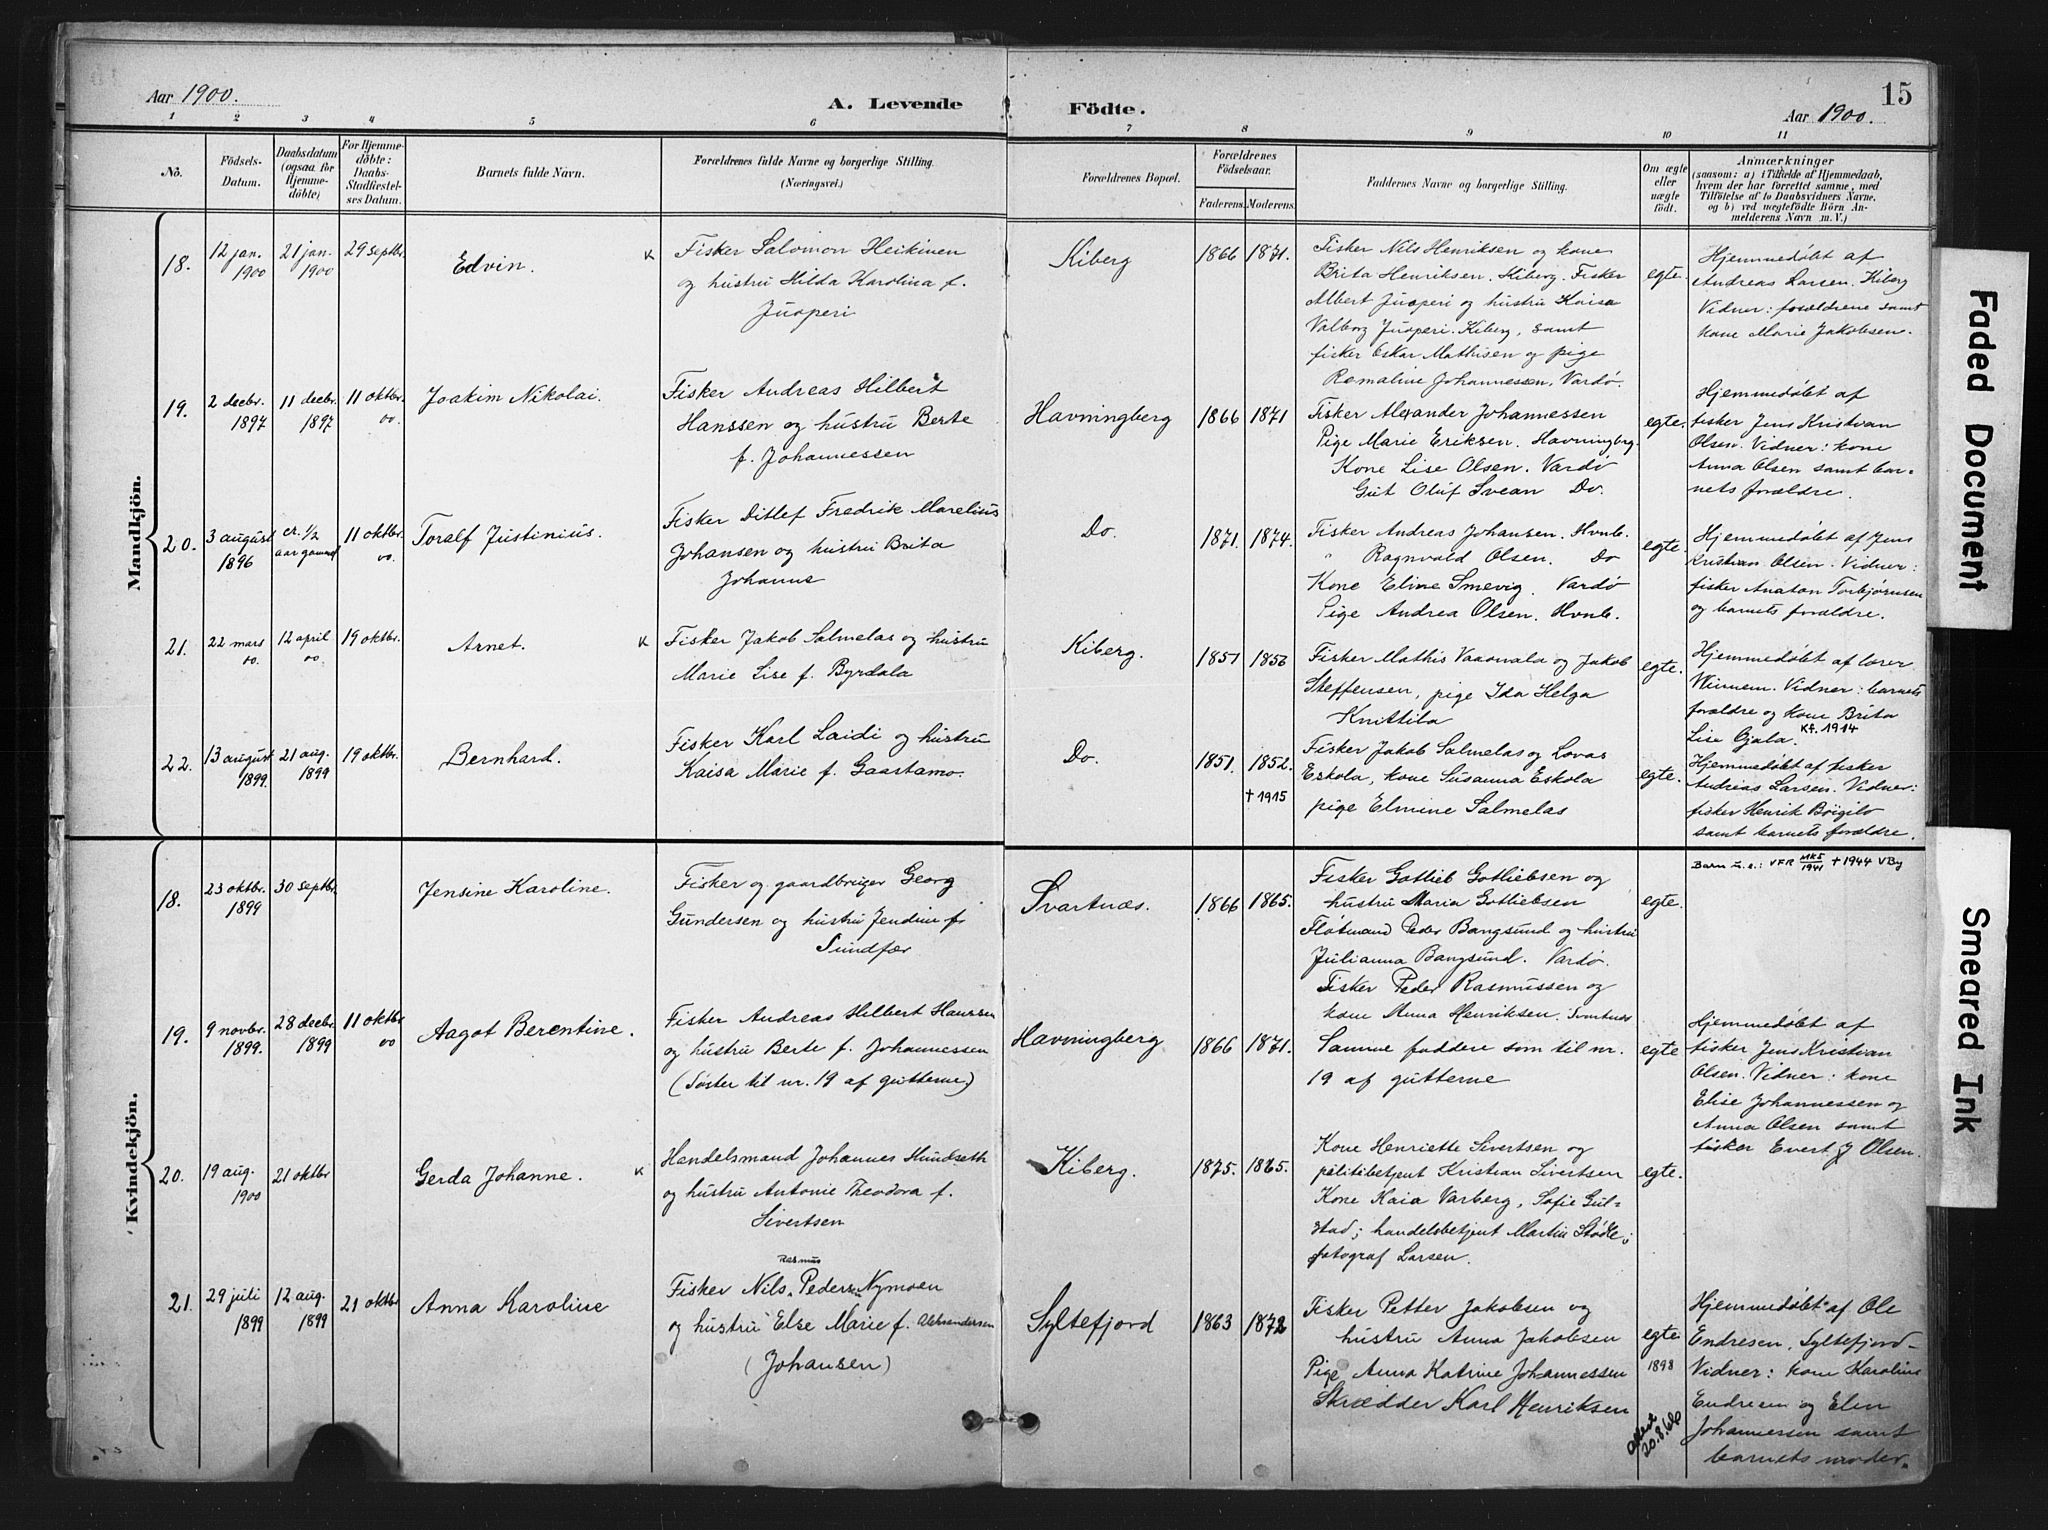 15
Aar 1900.
A. Levende
Födte.
Aar 1900.
1 2 3 4 5 6 7 8 9 10 11
No.
Födsels-Datum.
Daabsdatum (ogsaa for Hjemmedöbte)
For Hjemmedöbte: Daabs-Stadfæstelses Datum.
Barnets fulde Navn.
Forældrenes fulde Navne og borgerlige Stilling.
(Næringsvei.)
Forældrenes Bopæl.
Forældrenes Födselsaar.
Faderens. Moderens.
Faddernes Navne og borgerlige Stilling.
Om ægte eller uægte födt.
Anmærkninger
(saasom: a) i Tilfælde af Hjemmedaab,
hvem der har forrettet samme, med
Tilföielse af to Daabsvidners Navne.
og b) ved uægtefödte Börn Anmelderens Navn m. V.)
Mandkjön.
18.
12 jan. 1900
21 jan. 1900
29 septbr.
Edvin.
K
Fisker Salomon Heikinen
og hustru Hilda Karolina f.
Juoperi
Kiberg
1866 1871.
Fisker Nils Henriksen og kone
Brita Henriksen. Kiberg. Fisker
Albert Juoperi og hustru Kaisa
Valborg Juoperi. Kiberg, samt
fisker Oskar Mathisen og pige
Romaline Johannessen, Vardø.
egte.
Hjemmedøbt af
Andreas Larsen. Kiberg
Vidner: forældrene samt
kone Marie Jakobsen.
19.
2 decbr. 1897
11 decbr. 1897
11 oktbr. 00.
Joakim Nikolai.
Fisker Andreas Hilbert
Hanssen og hustru Berte
f. Johannessen
Havningberg
1866 1871
Fisker Alexander Johannessen
Pige Marie Eriksen. Havningberg.
Kone Lise Olsen. Vardø
Gut Oluf Svean Do.
egte.
Hjemmedøbt af
fisker Jens Kristian
Olsen. Vidner: kone
Anna Olsen samt bar-
nets forældre.
20.
3 august 1896
cr. 1/2 aar gammel
11 oktbr. 00.
Toralf Justinius.
Fisker Ditlef Fredrik Marelius
Johansen og hustru Brita
Johanne
Do.
1871. 1874.
Fisker Andreas Johansen. Hvnb.
" Ragnvald Olsen. Do
Kone Eline Smevig. Vardø
Pige Andrea Olsen. Hvnb.
egte.
Hjemmedøbt af Jens
Kristian Olsen. Vidner:
fisker Anaton Torbjørnsen
og barnets forældre.
21.
22 mars 00.
12 april 00.
19 oktbr.
Arnet.
K
Fisker Jakob Salmelas og hustru
Marie Lise f. Byrdala
Kiberg.
1851 1856
Fisker Mathis Vaaonala og Jakob
Steffensen, pige Ida Helga
Knittila
egte.
Hjemmedøbt af lærer
Vidner: barnets
forældre og kone Brita
Lise Ojala.
Kf. 1914
22.
13 august 1899.
21 aug. 1899
19 oktbr.
Bernhard.
Fisker Karl Laidi og hustru
Kaisa Marie f. Gaastamo.
Do.
1851. 1852.
† 1915
Fisker Jakob Salmelas og Lovas
Eskola, kone Susanna Eskola
pige Elmine Salmelas
egte.
Hjemmedøbt af fisker
Andreas Larsen. Vidner:
fisker Henrik
samt barnets forældre.
Kvindekjön.
18.
23 oktbr. 1899
30 septbr.
Jensine Karoline.
Fisker og gaardbruger Georg
Gundersen og hustru Jendine f.
Sundfær
Svartnæs.
1866 1865.
Fisker Gotlieb Gotliebsen og
hustru Maria Gotliebsen
Fløtmand Peder Bangsund og hustru
Julianna Bangsund. Vardø.
Fisker Peder Rasmussen og
kone Anna Henriksen. Svartnæs
egte.
Barn u. e.: VFR MK5/1941 † 1944 VBy
19.
9 novbr. 1899.
28 decbr. 1899
11 oktbr 00
Aagot Berentine.
Fisker Andreas Hilbert Hanssen
og hustru Berte f. Johannessen
(Søster til nr. 19 af gutterne)
Havningberg
1866 1871.
Samme faddere som til nr.
19 af gutterne
egte
Hjemmedøbt af
fisker Jens Kristian
Olsen. Vidner: kone
Elise Johannessen og
Anna Olsen samt
fisker Evert J Olsen.
20.
19 aug. 1900
21 oktbr
Gerda Johanne.
K
Handelsmand Johannes Hundseth
og hustru Antonie Theodora f.
Sivertsen
Kiberg.
1875. 1865.
Kone Henriette Sivertsen og
politibetjent Kristian Sivertsen
Kone Kaia Varberg, Sofie Gul-
stad; handelsbetjent Martin Stødle;
fotograf Larsen.
egte.
21.
29 juli 1899
12 aug. 1899
21 oktbr
Anna Karoline
Rasmus
Fisker Nils Peders. Nymoen
og hustru Else Marie f. Aleksandersen
(Johansen)
Syltefjord
1863 1872
Fisker Petter Jakobsen og
hustru Anna Jakobsen
Pige Anna Katrine Johannessen
Skrædder Karl Henriksen
egte
1898
Attest 20.8.66
Hjemmedøbt af Ole
Endresen, Syltefjord-
Vidner: kone Karoline
Endresen og Elen
Johannessen samt
barnets moder.
Faded Document
Smeared Ink